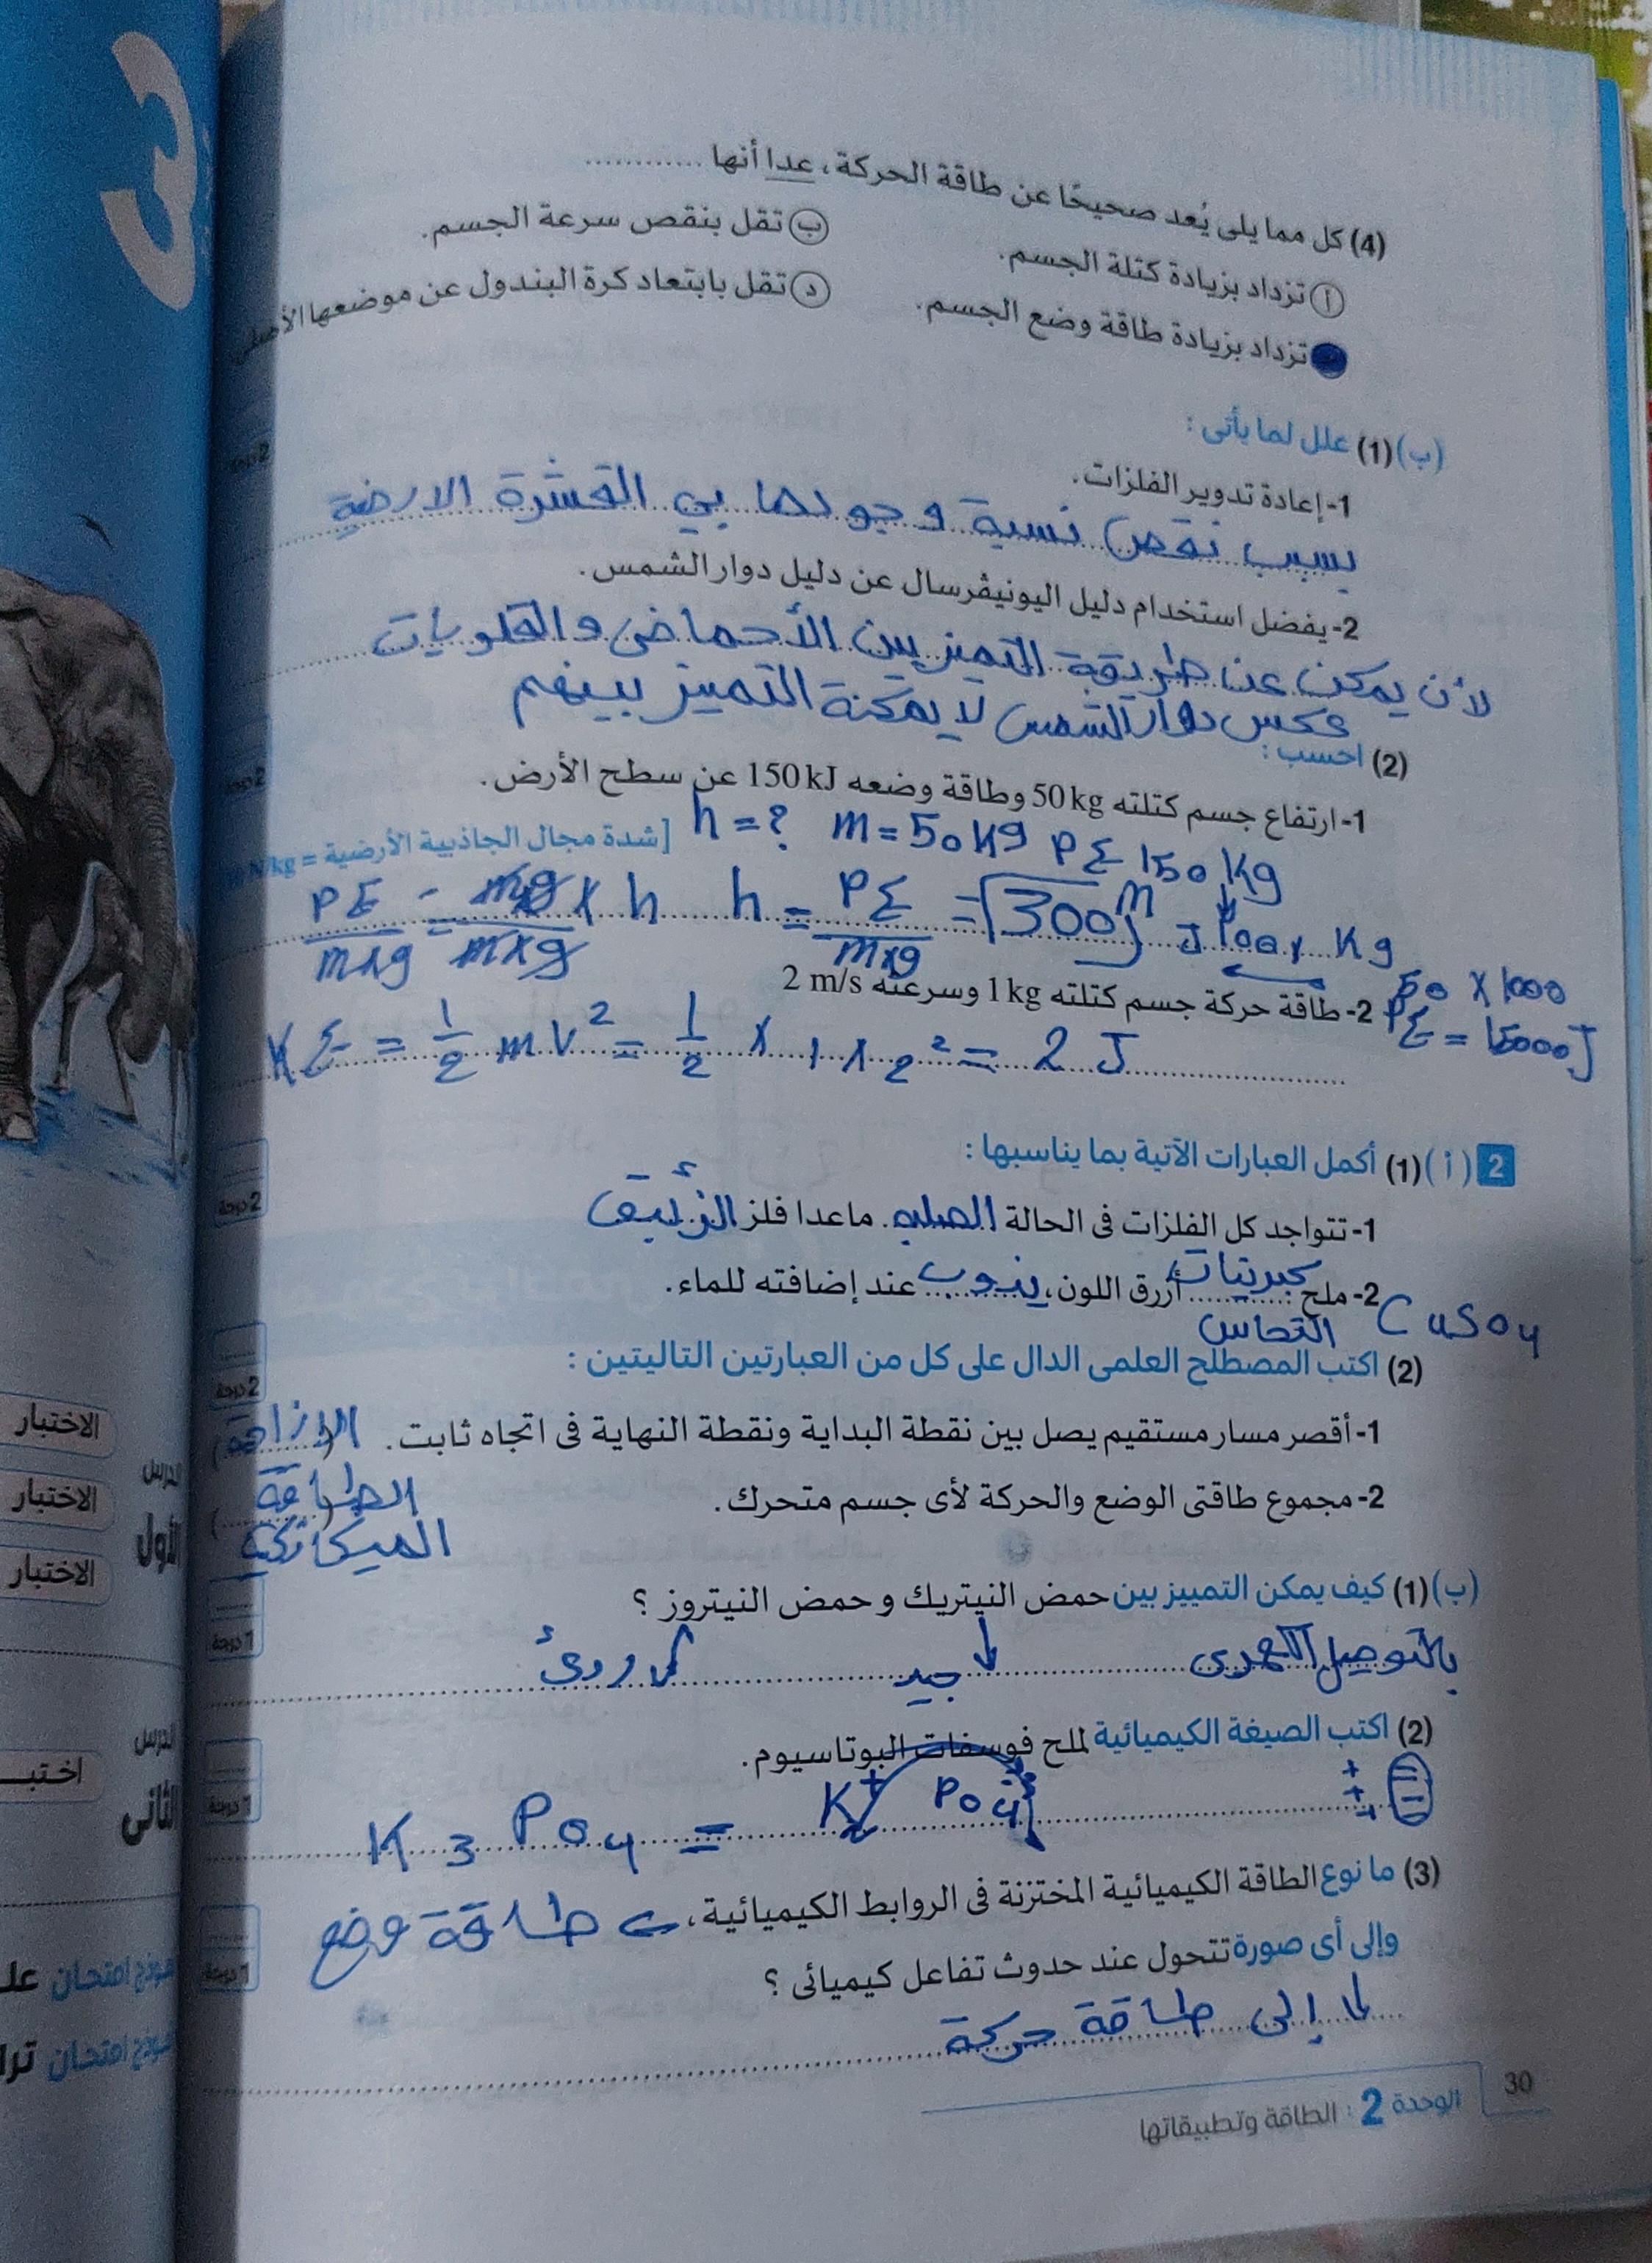 (4) كل مما يلى يُعد صحيحًا عن طاقة الحركة، عدا أنها ............
أ تزداد بزيادة كتلة الجسم.
ب تقل بنقص سرعة الجسم.
تزداد بزيادة طاقة وضع الجسم.
د تقل بابتعاد كرة البندول عن موضعها الأصلى
(ب) (1) علل لما يأتى :
2 درجة
1- إعادة تدوير الفلزات.
بسبب نقص نسبة وجودها بي القشرة الارضية
2- يفضل استخدام دليل اليونيڤرسال عن دليل دوار الشمس.
لأن يمكن عن طريقة التميز بين الأحماض والقلويات
عكس دوار الشمس لا يمكنة التمييز بينهم
(2) احسب :
2 درجة
1- ارتفاع جسم كتلته 50 kg وطاقة وضعه 150 kJ عن سطح الأرض.
[شدة مجال الجاذبية الأرضية = N/kg
h = ? m = 50 Kg PE 150 Kg
PE / m×g = m×g × h / m×g h = PE / m×g = 300 m
J Kg
50 × 1000
PE = 15000 J
2- طاقة حركة جسم كتلته 1 kg وسرعته 2 m/s
KE = 1/2 mv² = 1/2 × 1 × 2² = 2 J
2 (أ) (1) أكمل العبارات الآتية بما يناسبها :
2 درجة
1- تتواجد كل الفلزات فى الحالة الصلبه ماعدا فلز الزئبق
2- ملح كبريتات النحاس أزرق اللون، يذوب عند إضافته للماء.
CuSO4
(2) اكتب المصطلح العلمى الدال على كل من العبارتين التاليتين :
2 درجة
1- أقصر مسار مستقيم يصل بين نقطة البداية ونقطة النهاية فى اتجاه ثابت. (الإزاحة)
2- مجموع طاقتى الوضع والحركة لأى جسم متحرك. (الطاقة
الميكانكية
(ب) (1) كيف يمكن التمييز بين حمض النيتريك وحمض النيتروز ؟
1 درجة
بالتوصيل الكهربى جيد ردئ
(2) اكتب الصيغة الكيميائية لملح فوسفات البوتاسيوم.
1 درجة
K3PO4 = K+ PO4
(3) ما نوع الطاقة الكيميائية المختزنة فى الروابط الكيميائية، طاقة وضع
1 درجة
وإلى أى صورة تتحول عند حدوث تفاعل كيميائى ؟
إلى طاقة حركة
30
الوحدة 2 : الطاقة وتطبيقاتها
الاختبار
الدرس
الاختبار
الأول
الاختبار
الدرس
الثانى
نموذج امتحان
نموذج امتحان